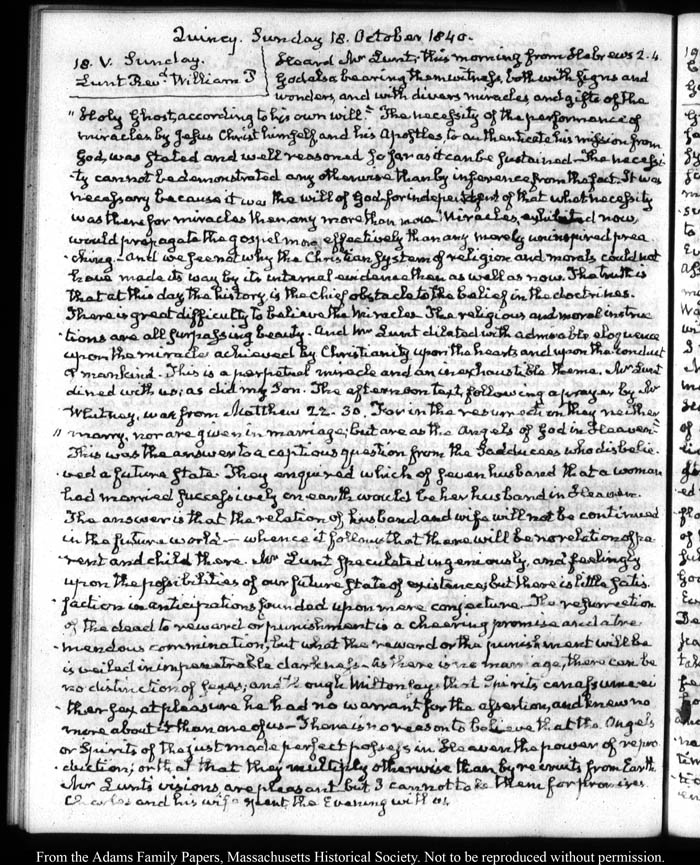 Quincy. Sunday 18. October 1840.
18. V. Sunday.
Lunt Revd. William P
Heard Mr Lunt, this morning from Hebrews 2. 4.
God also bearing them witness, both with signs and
wonders, and with divers miracles, and gifts of the
" Holy Ghost, according to his own will." The necessity of the performance of
miracles by Jesus Christ himself, and his Apostles to authenticate his mission from
God, was stated and well reasoned so far as it can be sustained. The necessi-
ty cannot be demonstrated any otherwise than by inference from the fact. It was
necessary because it was the will of God for independent of that what necessity
was there for miracles then, any more than now. Miracles, exhibited now,
would propagate the gospel more effectively than any merely uninspired prea
ching. And we see not why the Christian system of religion and morals could not
have made its way by its internal evidence then as well as now. The truth is
that at this day the history, is the chief obstacle to the belief in the doctrines.
There is great difficulty to believe the Miracles. The religious and moral instruc
tions are all surpassing beauty. And Mr Lunt dilated with admirable eloquence
upon the miracle achieved by Christianity upon the hearts and upon the conduct
of mankind. This is a perpetual miracle and an inexhaustible theme. Mr Lunt
dined with us; as did my Son. The afternoon text, following a prayer by Mr
Whitney, was from Matthew 22. 30. For in the resurrection they neither
" marry, nor are given in marriage; but are as the Angels of God in Heaven"
This was the answer to a captious question from the Sadducees who disbelie-
ved a future state. They enquired which of seven husbands that a woman
had married successively on earth would be her husband in Heaven.
The answer is that the relation of husband and wife will not be continued
in the future world — whence it follows that there will be no relation of pa
rent and child there. Mr Lunt speculated ingeniously, and feelingly
upon the possibilities of our future state of existence; but there is little satis
faction in anticipations founded upon mere conjecture. The resurrection
of the dead to reward or punishment is a cheering promise and a tre
mendous commination, but what the reward or the punishment will be
is veiled in impenetrable darkness. As there is no marriage, there can be
no distinction of sexes; and though Milton says that Spirits can assume ei
ther sex at pleasure he had no warrant for the assertion, and knew no
more about it than one of us. There is no reason to believe that the Angels
or Spirits of the just made perfect possess in Heaven the power of repro
duction; or that they multiply otherwise than by recruits from Earth.
Mr Lunt's visions are pleasant but I cannot take them for promises
Charles and his wife spent the Evening with us.
From the Adams Family Papers, Massachusetts Historical Society. Not to be reproduced without permission.